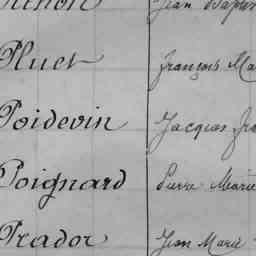 Jean Baptis
Pluet François Ma
Poidevin Jacques Fra
Poignard Pierre Marie
Prador Jean Marie